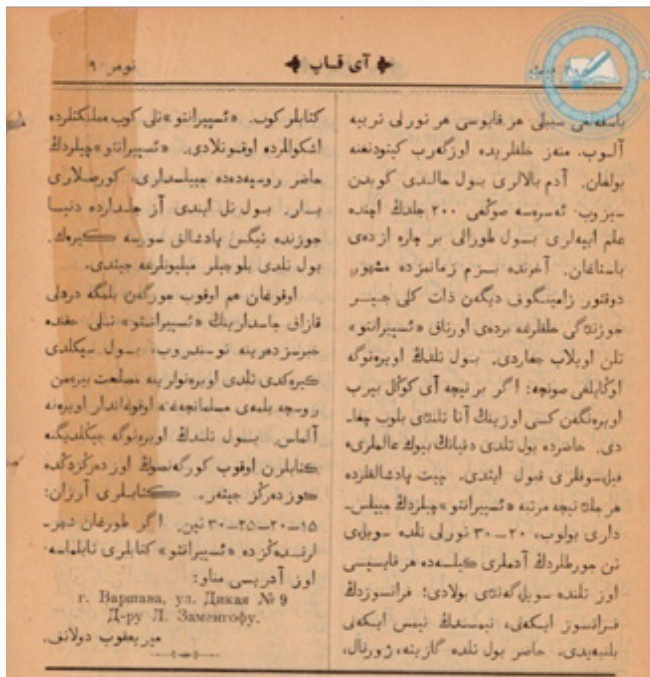 نومر-۹
آی قاپ
باسقه‌سی سببلی هر قایوسی هر تورلی تربیه
آلوب، منه‌ز خلقلریده اوزگه‌رب کیتودنغنه
بولغان. آدم بالالری بول حالدی کوبدن
سیزوب ئه‌سره‌سه صوڭغی ۲۰۰ جلدڭ ایچنده
علم ایه‌لری بول طورالی بر چاره ازده‌ی
باستاغان. آخرنده بزم زمانمزده مشهور
دوقتور زامینگوف دیگه‌ن ذات کلی جیر
جوزنده‌گی خلقلرغه برده‌ی اورتاق «ئسپیرانتو»
تلن اویلاب جغاردی. بول تلدڭ اویره‌نوگه
اوڭایلغی صونچه: اگر بر نیچه آی کوڭل بیرب
اویره‌نگه‌ن کسی اوزینڭ آنا تلنده‌ی بلوب چغا-
دی. حاضرده بول تلدی دنیانڭ بیوك عالملری،
فیلسوفلری قبول ایتدی. چیت پادشالقلرده
هر جلده نیچه مرتبه «ئسپیرانتو»چیلردڭ جییلس-
داری بولوب، ۲۰–۳۰ تورلی تلده سویلی
تن جورطلردڭ آدملری کیلسه‌ده هر قایسیسی
اوز تلنده سویله‌گه‌نده‌ی بولادی؛ فرانسوزدڭ
فرانسوز ایکه‌نی، نیمسنڭ نیمس ایکه‌نی
بلنبه‌یدی. حاضر بول تلده گازیته، ژورنال،
کتابلر کوب. «ئسپیرانتو» تلی کوب مملیکتلرده
اشکوللرده اوقوتلادی. «ئسپیرانتو»چیلردڭ
حاضر روسیه‌ده‌ده جییلسداری، کورصلاری
بار. بول تل ایندی آز جلدارده دنیا
جوزنده تیگس پادشالق سورسه کیره‌ك.
بول تلدی بلوچیلر میلیونلرغه جیتدی.
اوقوغان هم اوقوب جورگه‌ن بلمگه دردلی
قازاق جاسدارینڭ «ئسپیرانتو» تیلی حقنده
خبرسزده‌رینه توسندروب، بول سیکلدی
کیره‌کدی تلدی اویره‌نولرینه مصلحت بیره‌من
روسچه بلمه‌ی مسلمانچه‌غنه اوقوغاندار اویره‌نه
آلماس. بول تلدڭ اویره‌نوگه جیڭلدیگنه
کتابلرن اوقوب کورگه‌نسوڭ اوزده‌رڭزدڭده
کوزده‌رڭز جیتەر. کتابلری آرزان:
۱۵–۲۰–۲۵–۳۰ تین. اگر طورغان جهر-
لرنده‌ڭزده «ئسپیرانتو» کتابلری تابلماسه،
اوز آدریسی مناو:
г. Варшава, ул. Дикая № 9
Д-ру Л. Заменгофу.
میریعقوب دولاتف.